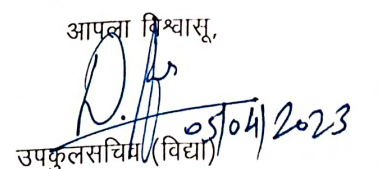 आपला विश्वासू,
05/04/2023
उपकुलसचिव (विद्या)